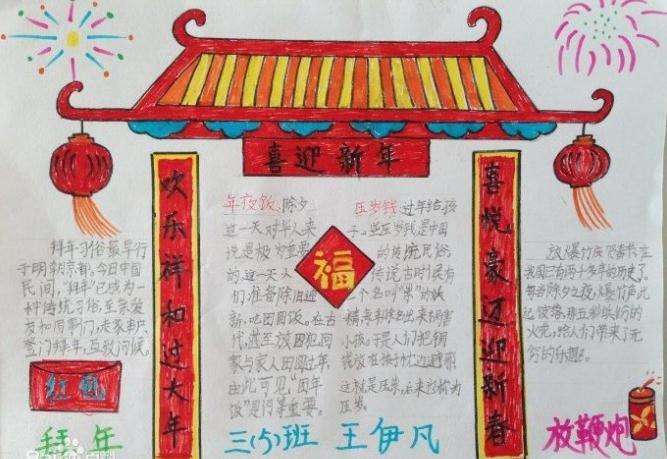 喜迎新年
欢乐祥和过大年
喜悦豪迈迎新春
福
拜年习俗最早行
于明朝京都。今日中国
民间，“拜年”已成为一
种传统习俗，至亲发
友和同事们，走家串户
登门拜年，互致问候。
红包
拜年
年夜饭：除夕
这一天对华人来
说是极为重要
的。这一天人
们，准备除旧迎
新，吃团圆饭。在古
代，
家与家人团圆过年，
由此可见“团年
饭”是何等重要。
压岁钱：过年给孩
子。压岁钱是中国
的传统民俗
传说古时候有
个名叫“祟”的妖
精，
小孩。于是人们把铜
钱放在孩子枕边避邪
这就是压祟，后来沿称为
压岁。
放爆竹
我国已有两千多年的历史了。
每当除夕之夜，爆竹声此
起彼落，那五彩缤纷的
火光，给人们带来了无
穷的乐趣。
放鞭炮
三(5)班 王伊凡